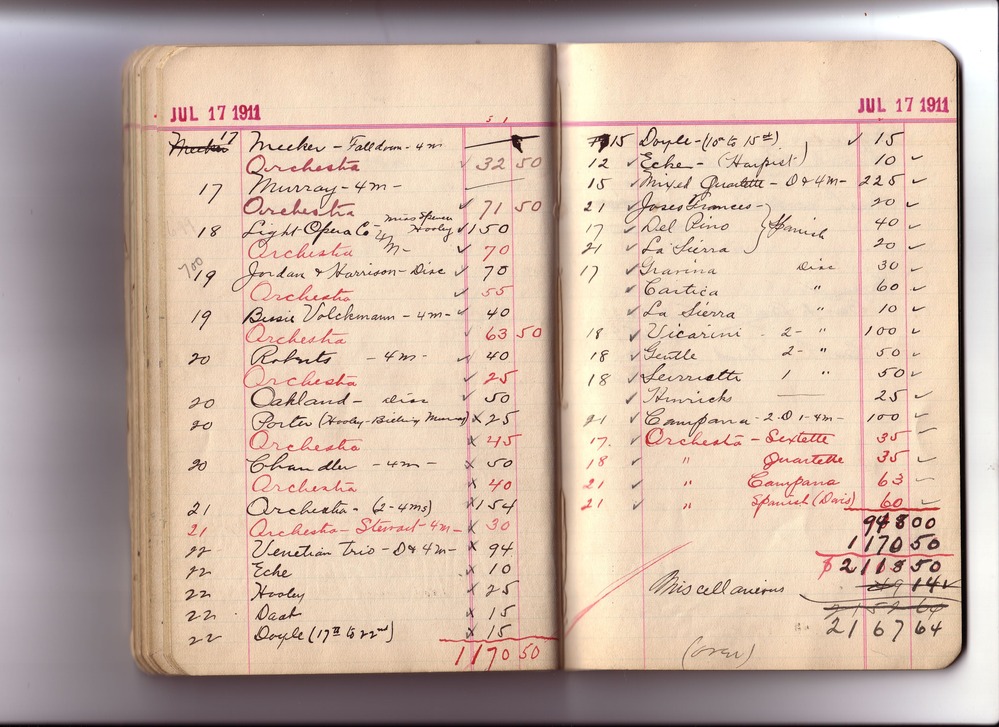 JUL 17 1911
17 Meeker - Falldown - 4m
Orchestra ✓ 32 50
17 Murray - 4m -
Orchestra ✓ 71 50
18 Light Opera Co - 4 M - Miss Spencer Hooley ✓ 150
Orchestra ✓ 70
700
19 Jordan & Harrison - Disc ✓ 70
Orchestra ✓ 55
19 Busie Volckmann - 4m - ✓ 40
Orchestra 63 50
20 Roberts - 4m - ✓ 40
Orchestra ✓ 25
20 Oakland - disc ✓ 50
20 Porter (Hooley - Bieling Murray) x 25
Orchestra x 45
20 Chandler - 4m - x 50
Orchestra x 40
21 Orchestra - (2-4ms) x 154
21 Orchestra - Stewart - 4m - x 30
22 Venetian Trio - D & 4m - x 94
22 Ecke x 10
22 Hooley x 25
22 Daab x 15
22 Doyle (17th to 22nd) x 15
1170 50
JUL 17 1911
15 Doyle - (10th to 15th) ✓ 15
12 ✓ Ecke - (Harpist) 10 ✓
15 ✓ Mixed Quartette - D & 4m - 225 ✓
21 ✓ Joses Frances - 20 ✓
17 ✓ Del Pino } Spanish 40 ✓
21 ✓ La Sierra 20 ✓
17 ✓ Gravina Disc 30 ✓
✓ Cartica " 60 ✓
✓ La Sierra " 10 ✓
18 ✓ Vicarini - 2 - " 100 ✓
18 ✓ Gentle 2 - " 50 ✓
18 ✓ 1 " 50 ✓
✓ Hinricks 25 ✓
21 ✓ Campana - 2 D 1-4m - 100 ✓
17. ✓ Orchestra - Sextette 35
18 ✓ " Quartette 35 ✓
21 ✓ " Campana 63
21 ✓ " Spanish (Davis) 60 ✓
948 00
1170 50
$ 2118 50
Miscellaneous 49 14
2167 64
(over)